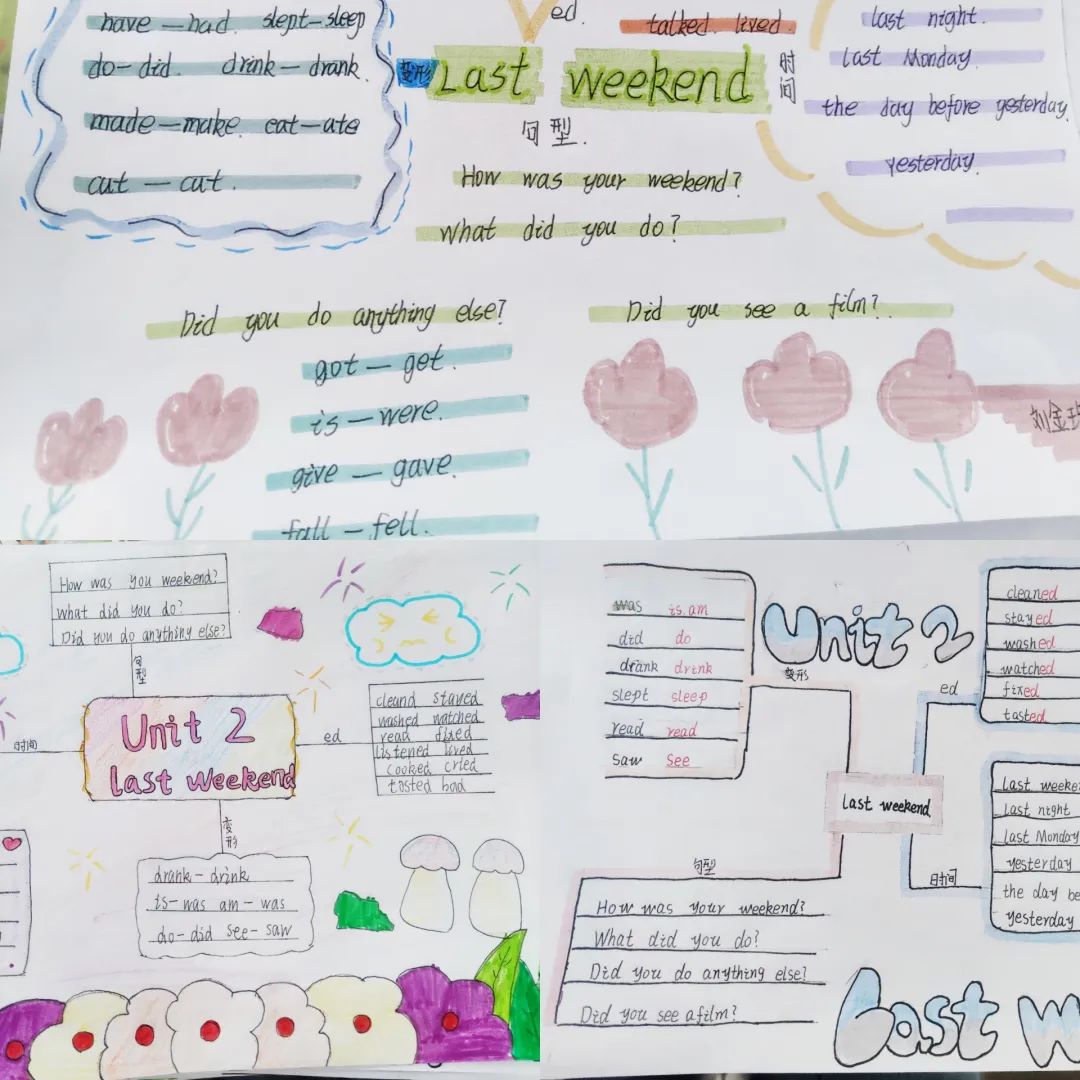 have — had. slept — sleep
do — did. drink — drank.
made — make. eat — ate
cut — cut.
变形
ed.
talked. lived.
Last weekend
时间
last night.
last Monday.
the day before yesterday.
yesterday.
句型.
How was your weekend?
What did you do?
Did you do anything else?
Did you see a film?
got — get.
is — were.
give — gave.
fall — fell.
刘金
How was you weekend?
what did you do?
Did you do anything else?
句型
Unit 2
last weekend
时间
ed
cleand stayed
washed watched
read fixed
listened lived
cooked cried
tasted had
变形
drank - drink
is - was am - was
do - did see - saw
was is.am
did do
drank drink
slept sleep
read read
saw see
Unit 2
变形
ed
cleaned
stayed
washed
watched
fixed
tasted
last weekend
Last weeke
Last night
last Monday
yesterday
the day be
yesterday
时间
句型
How was your weekend?
What did you do?
Did you do anything else?
Did you see afilm?
Last w